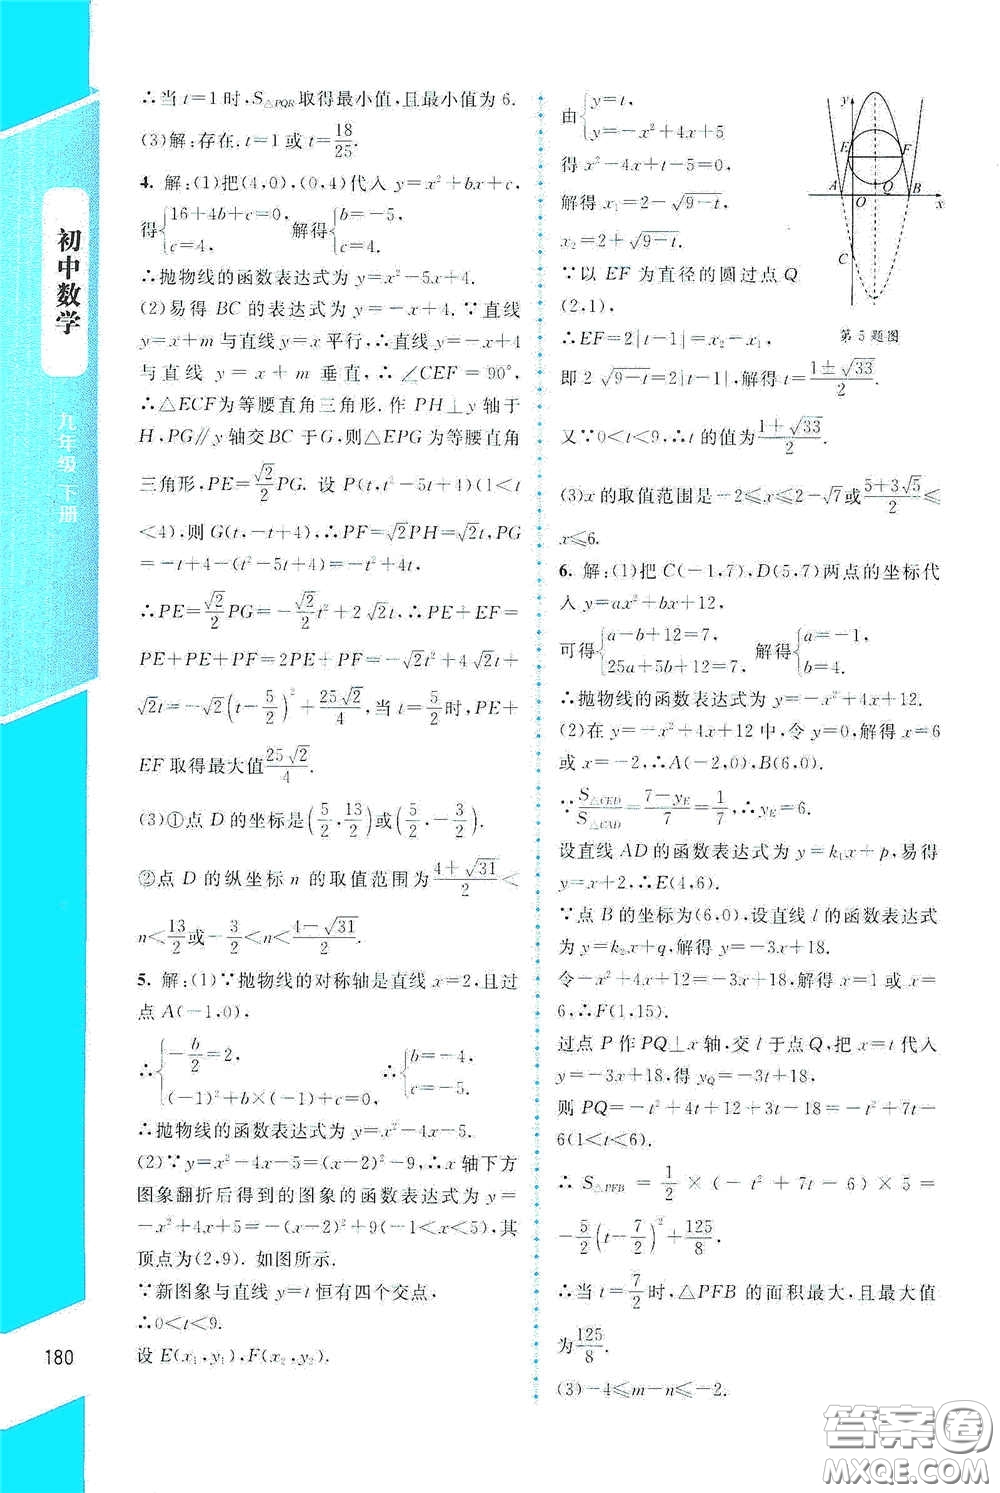 初中数学
九年级 下册
180
∴当 t=1 时,S△PQR取得最小值,且最小值为 6.
(3)解:存在. t=1 或 t=18/25.
4. 解:(1)把(4,0),(0,4)代入 y=x²+bx+c,
得{16+4b+c=0, c=4, 解得{b=-5, c=4.
∴抛物线的函数表达式为 y=x²-5x+4.
(2)易得 BC 的表达式为 y=-x+4. ∵直线
y=x+m 与直线 y=x 平行,∴直线 y=-x+4
与直线 y=x+m 垂直,∴∠CEF=90°,
∴△ECF为等腰直角三角形. 作 PH⊥y 轴于
H,PG∥y 轴交 BC 于 G,则△EPG 为等腰直角
三角形,PE=√2/2 PG. 设 P(t,t²-5t+4)(1<t
<4),则 G(t,-t+4),∴PF=√2PH=√2t,PG=
-t+4-(t²-5t+4)=-t²+4t,
∴PE=√2/2 PG=-√2/2 t²+2√2t,∴PE+EF=
PE+PE+PF=2PE+PF=-√2t²+4√2t+
√2t=-√2(t-5/2)²+25√2/4,当 t=5/2时,PE+
EF 取得最大值25√2/4.
(3)①点 D 的坐标是(5/2,13/2)或(5/2,-3/2).
②点 D 的纵坐标 n 的取值范围为(4+√31)/2<
n<13/2或-3/2<n<(4-√31)/2.
5. 解:(1)∵抛物线的对称轴是直线 x=2,且过
点 A(-1,0),
∴{-b/2=2, (-1)²+b×(-1)+c=0, ∴{b=-4, c=-5.
∴抛物线的函数表达式为 y=x²-4x-5.
(2)∵y=x²-4x-5=(x-2)²-9,∴x 轴下方
图象翻折后得到的图象的函数表达式为 y=
-x²+4x+5=-(x-2)²+9(-1<x<5),其
顶点为(2,9). 如图所示.
∵新图象与直线 y=t 恒有四个交点,
∴0<t<9.
设 E(x₁,y₁),F(x₂,y₂).
由{y=t, y=-x²+4x+5
得 x²-4x+t-5=0,
解得 x₁=2-√9-t,
x₂=2+√9-t.
∵以 EF 为直径的圆过点 Q
(2,1),
∴EF=2|t-1|=x₂-x₁,
y
E
F
A
O
Q
B
x
C
第 5 题图
即 2√9-t=2|t-1|,解得 t=(1±√33)/2.
又∵0<t<9,∴t 的值为(1+√33)/2.
(3)x 的取值范围是-2≤x≤2-√7或(5+3√5)/2≤
x≤6.
6. 解:(1)把 C(-1,7),D(5,7)两点的坐标代
入 y=ax²+bx+12,
可得{a-b+12=7, 25a+5b+12=7, 解得{a=-1, b=4.
∴抛物线的函数表达式为 y=-x²+4x+12.
(2)在 y=-x²+4x+12 中,令 y=0,解得 x=6
或 x=-2,∴A(-2,0),B(6,0).
∵S△CED/S△CAD=(7-yE)/7=1/7,∴yE=6.
设直线 AD 的函数表达式为 y=k₁x+p,易得
y=x+2,∴E(4,6).
∵点 B 的坐标为(6,0),设直线 l 的函数表达式
为 y=k₂x+q,解得 y=-3x+18.
令-x²+4x+12=-3x+18,解得 x=1 或 x=
6,∴F(1,15).
过点 P 作 PQ⊥x 轴,交 l 于点 Q,把 x=t 代入
y=-3x+18,得 yQ=-3t+18,
则 PQ=-t²+4t+12+3t-18=-t²+7t-
6(1<t<6).
∴S△PFB=1/2×(-t²+7t-6)×5=
-5/2(t-7/2)²+125/8.
∴当 t=7/2时,△PFB 的面积最大,且最大值
为125/8.
(3)-4≤m-n≤-2.
答案卷
MXQE.COM